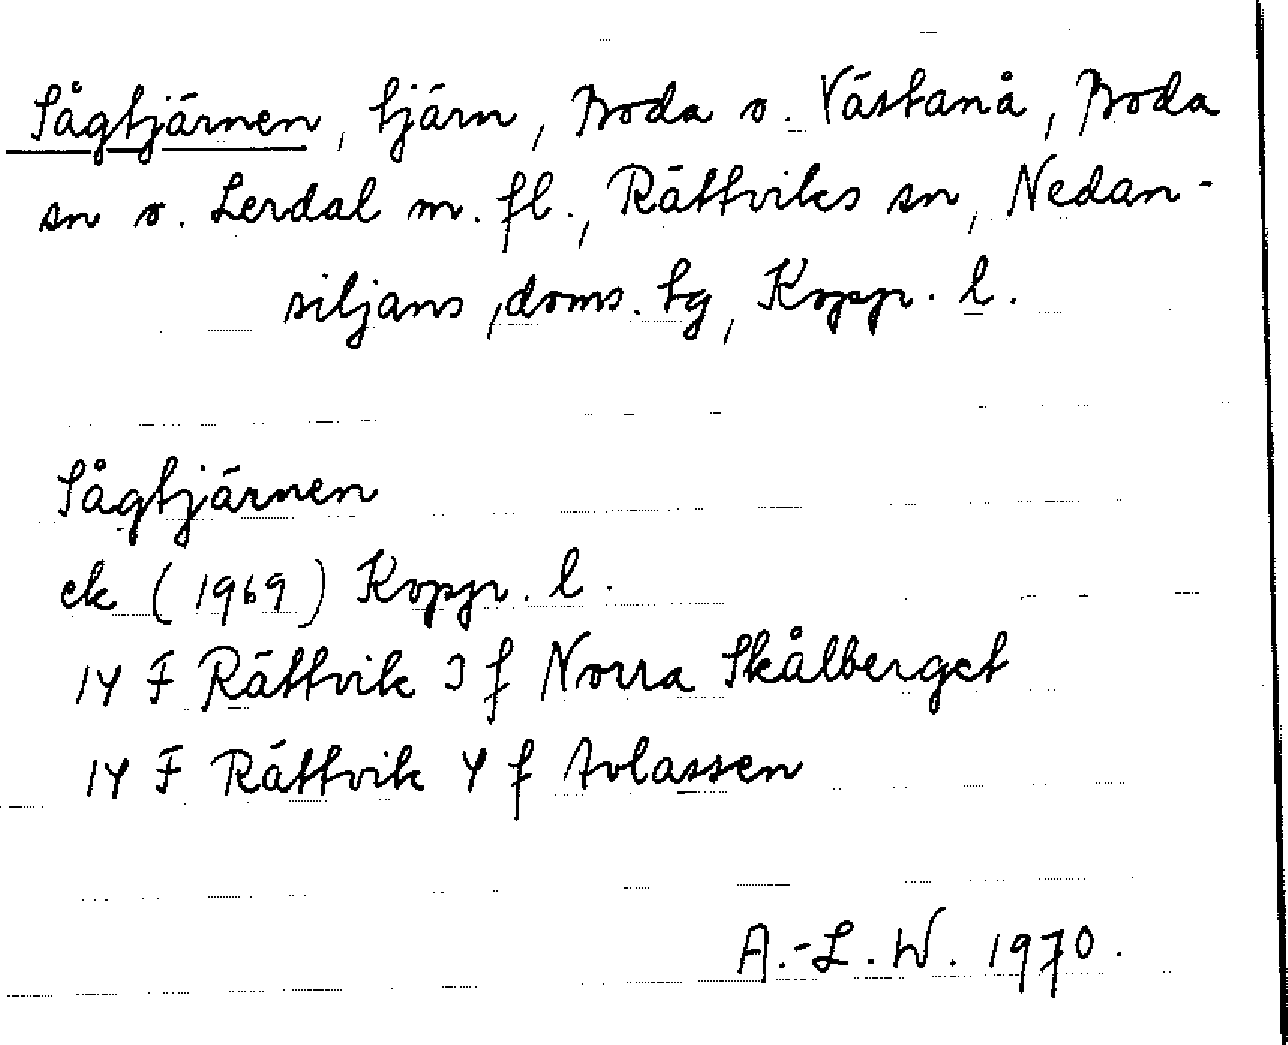 Sågtjärnen, tjärn, Boda o. Västanå, Boda
sn o. Lerdal m. fl., Rättviks sn, Nedan-
siljans doms. tg, Kopp. l.
Sågtjärnen
ek (1969) Kopp. l.
14 F Rättvik 3 f Norra Skålberget
14 F Rättvik 4 f Avlassen
A.-L. W. 1970.